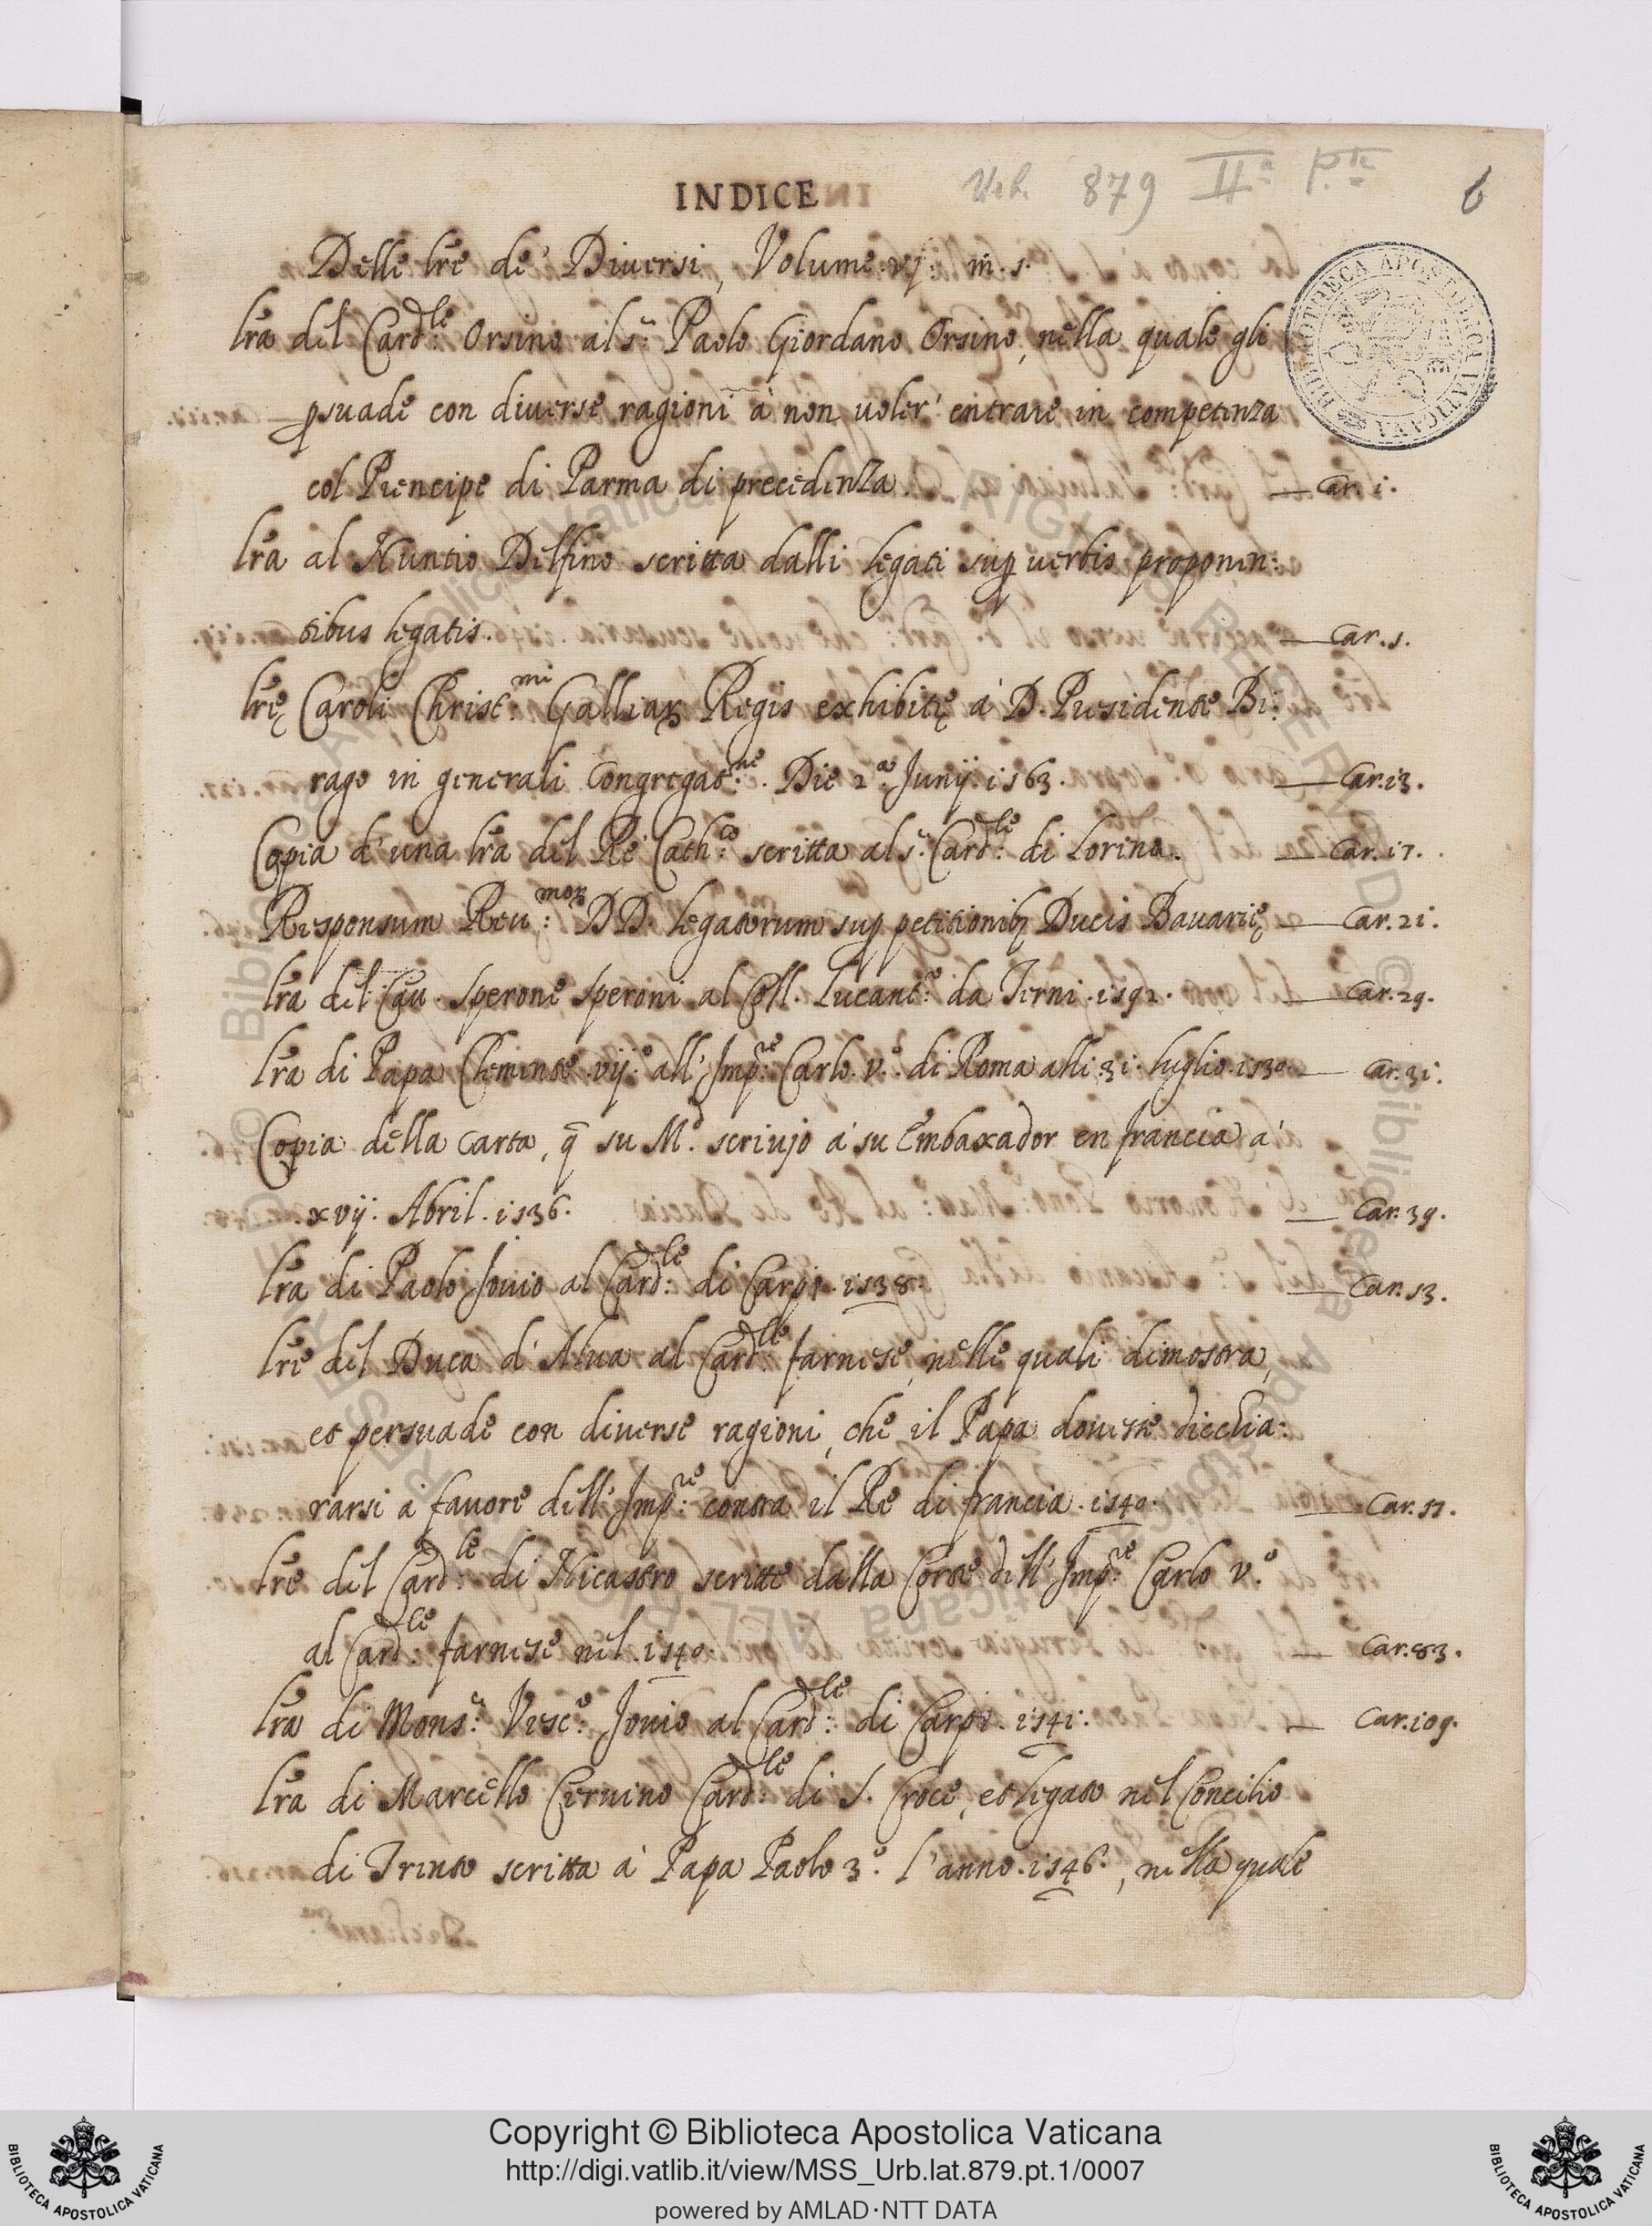 INDICE
Urb. 879 IIª P.te
6
Delle lr̃e de' Diuersi, Volume. vj: in. s.
lr̃a del Card:le Orsino al s.r Paolo Giordano Orsino, nella quale gli
ꝑsuade con diuerse ragioni à non uoler' entrare in competenza
col Prencipe di Parma di precedenza. — Car. i.
lr̃a al Nuntio Delfino scritta dalli legati suꝑ uerbis proponen:
tibus legatis. — Car. 5.
lr̃ę Caroli Christ:mi Galliaꝝ Regis exhibitę à D. Presidente Bi:
rago in generali Congregat:ne. Die 2.ª Junij. i563. — Car. i3.
Copia d'una lr̃a del Rè Cath:co scritta al s.r Card:le di Lorena. — Car. i7.
Responsum Reu:moꝝ DD. legatorum suꝑ petitionibꝫ Ducis Bauarię — Car. 2i.
lr̃a del Cau. Sperone Speroni al Coll. Lucant:o da Terni. i592. — Car. 29.
lr̃a di Papa Clemente .vij.o all'Imp:re Carlo .V.o di Roma alli. 3i. luglio. i530. — Car. 3i.
Copia della Carta, q̃ su M.d scriujo à su Embaxador en francia à
.xvij. Abril. i536. — Car. 39.
lr̃a di Paolo Jouio al Card:le di Carpi. i538. — Car. 53.
lr̃e del Duca d'Alua al Card:le farnese, nelle quali dimostra,
et persuade con diuerse ragioni, che il Papa douesse dicchia:
rarsi à fauore dell'Imp:re contra il Rè di francia. i540. — Car. 57.
lr̃e del Card:le di Nicastro scritte dalla Corte dell'Imp:re Carlo V.o
al Card:le farnese nel. i540. — Car. 83.
lr̃a di Mons:r Vesc:o Jouio al Card:le di Carpi. i54i. — Car. i09.
lr̃a di Marcello Ceruino Card:le di S. Croce, et legato nel Concilio
di Trento scritta à Papa Paolo 3.o l'anno. i546., nella quale
BIBLIOTHECA APOSTOLICA VATICANA
Copyright © Biblioteca Apostolica Vaticana
http://digi.vatlib.it/view/MSS_Urb.lat.879.pt.1/0007
powered by AMLAD·NTT DATA
BIBLIOTECA APOSTOLICA VATICANA
BIBLIOTECA APOSTOLICA VATICANA